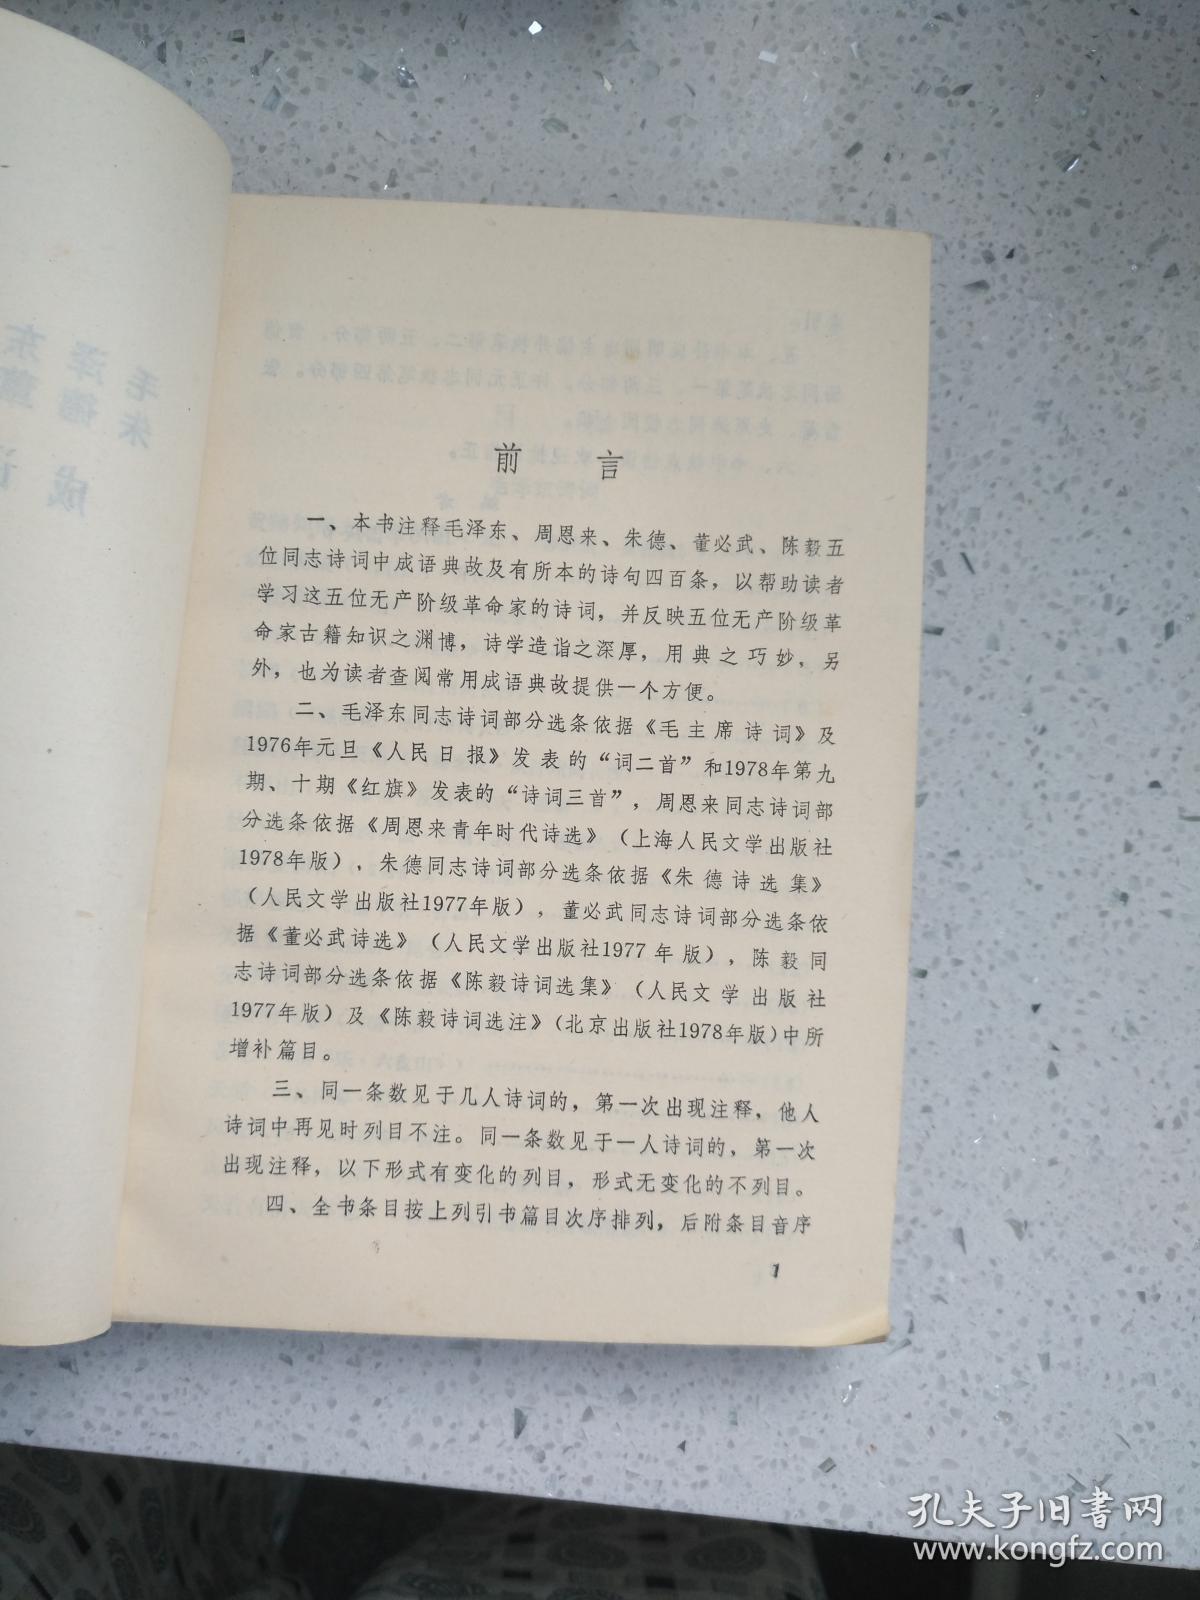 前言
一、本书注释毛泽东、周恩来、朱德、董必武、陈毅五
位同志诗词中成语典故及有所本的诗句四百条，以帮助读者
学习这五位无产阶级革命家的诗词，并反映五位无产阶级革
命家古籍知识之渊博，诗学造诣之深厚，用典之巧妙，另
外，也为读者查阅常用成语典故提供一个方便。
二、毛泽东同志诗词部分选条依据《毛主席诗词》及
1976年元旦《人民日报》发表的“词二首”和1978年第九
期、十期《红旗》发表的“诗词三首”，周恩来同志诗词部
分选条依据《周恩来青年时代诗选》（上海人民文学出版社
1978年版），朱德同志诗词部分选条依据《朱德诗选集》
（人民文学出版社1977年版），董必武同志诗词部分选条依
据《董必武诗选》（人民文学出版社1977年版），陈毅同
志诗词部分选条依据《陈毅诗词选集》（人民文学出版社
1977年版）及《陈毅诗词选注》（北京出版社1978年版）中所
增补篇目。
三、同一条数见于几人诗词的，第一次出现注释，他人
诗词中再见时列目不注。同一条数见于一人诗词的，第一次
出现注释，以下形式有变化的列目，形式无变化的不列目。
四、全书条目按上列引书篇目次序排列，后附条目音序
1
孔夫子旧书网
www.kongfz.com